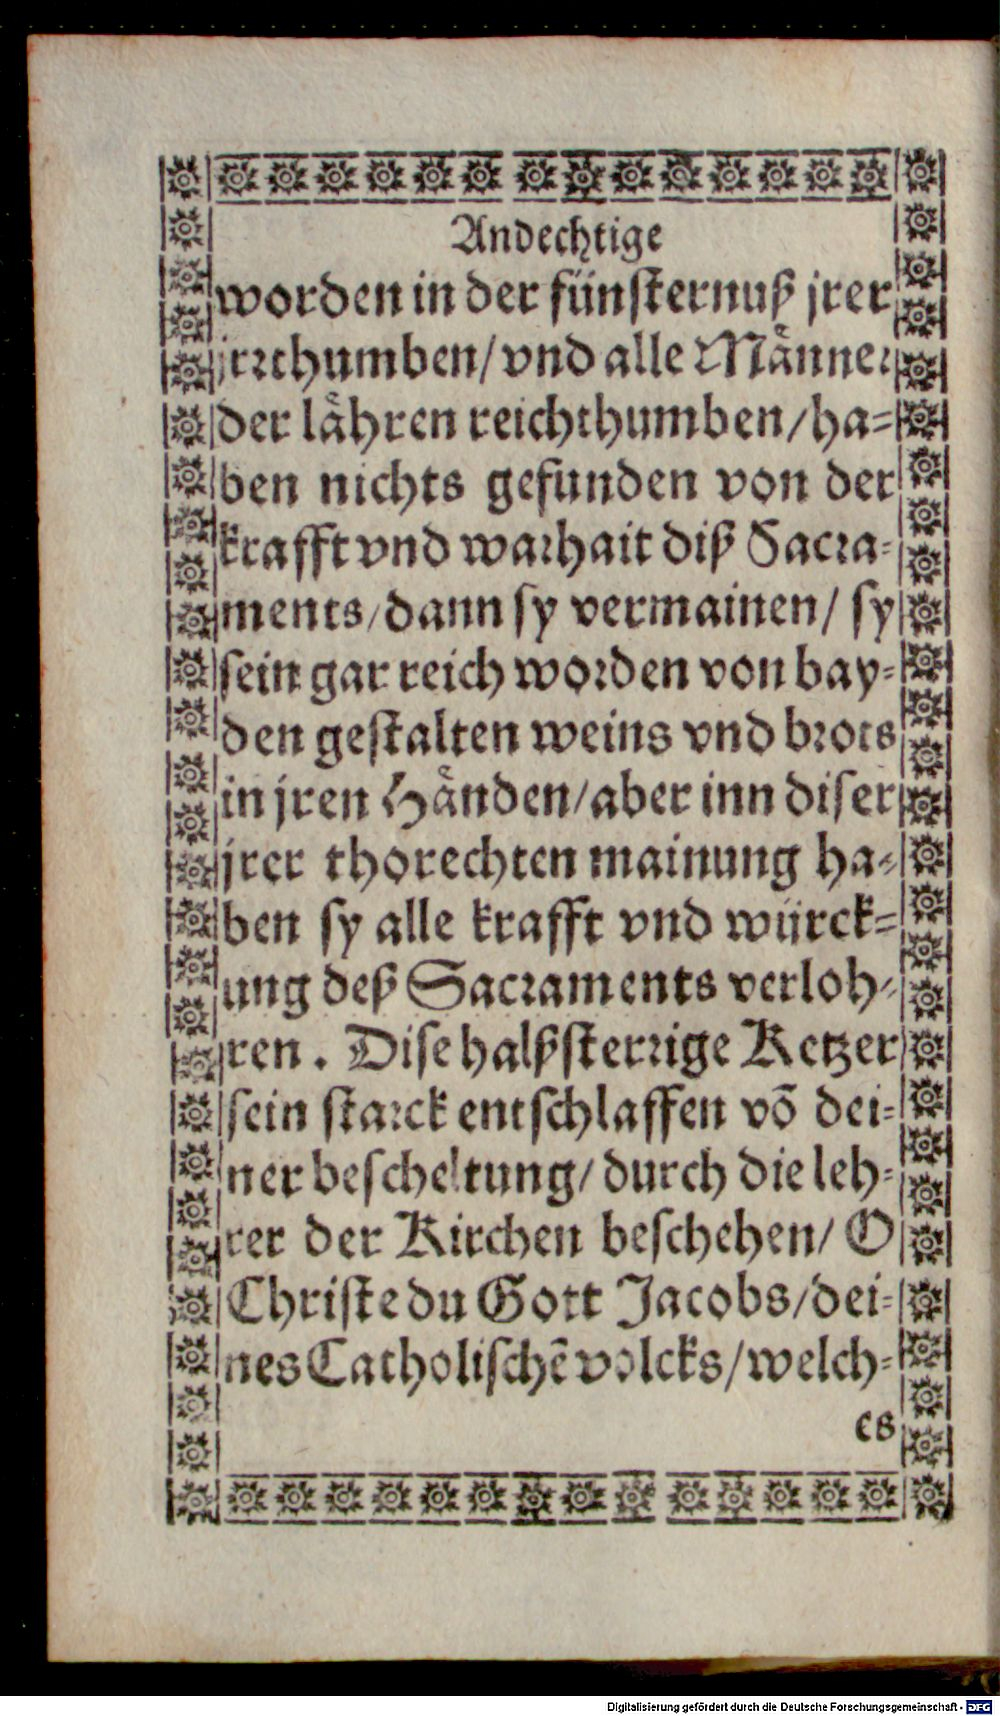 Andechtige
worden in der fünsternuß jrer
jrrthumben/vnd alle Maͤnner
der laͤhren reichthumben/ha-
ben nichts gefunden von der
krafft vnd warhait diß Sacra-
ments/dann sy vermainen/ sy
sein gar reich worden von bay-
den gestalten weins vnd brots
in jren Haͤnden/aber inn diser
jrer thorechten mainung ha-
ben sy alle krafft vnd würck-
ung deß Sacraments verloh-
ren. Dise halßsterrige Ketzer
sein starck entschlaffen võ dei-
ner bescheltung/durch die leh-
rer der Kirchen beschehen/ O
Christe du Gott Jacobs/dei-
nes Catholischẽ volcks/welch-
es
Digitalisierung gefördert durch die Deutsche Forschungsgemeinschaft - DFG